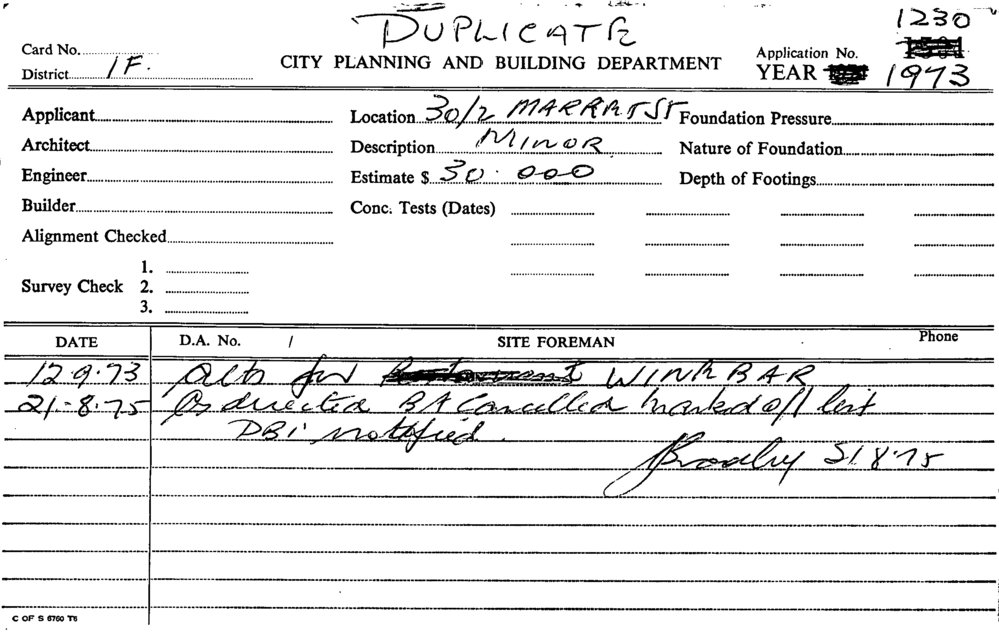 DUPLICATE
1230
Card No.
CITY PLANNING AND BUILDING DEPARTMENT
Application No.
District 1F.
YEAR 1973
Applicant
Location 30/2 St
Foundation Pressure
Architect
Description MINOR
Nature of Foundation
Engineer
Estimate $ 30.000
Depth of Footings
Builder
Conc. Tests (Dates)
Alignment Checked
1.
Survey Check 2.
3.
DATE D.A. No. / SITE FOREMAN Phone
12.9.73 Alts for WINE BAR
21.8.75 As directed BA Cancelled marked off list
DBI notified.
8.75
C OF S 6760 T6